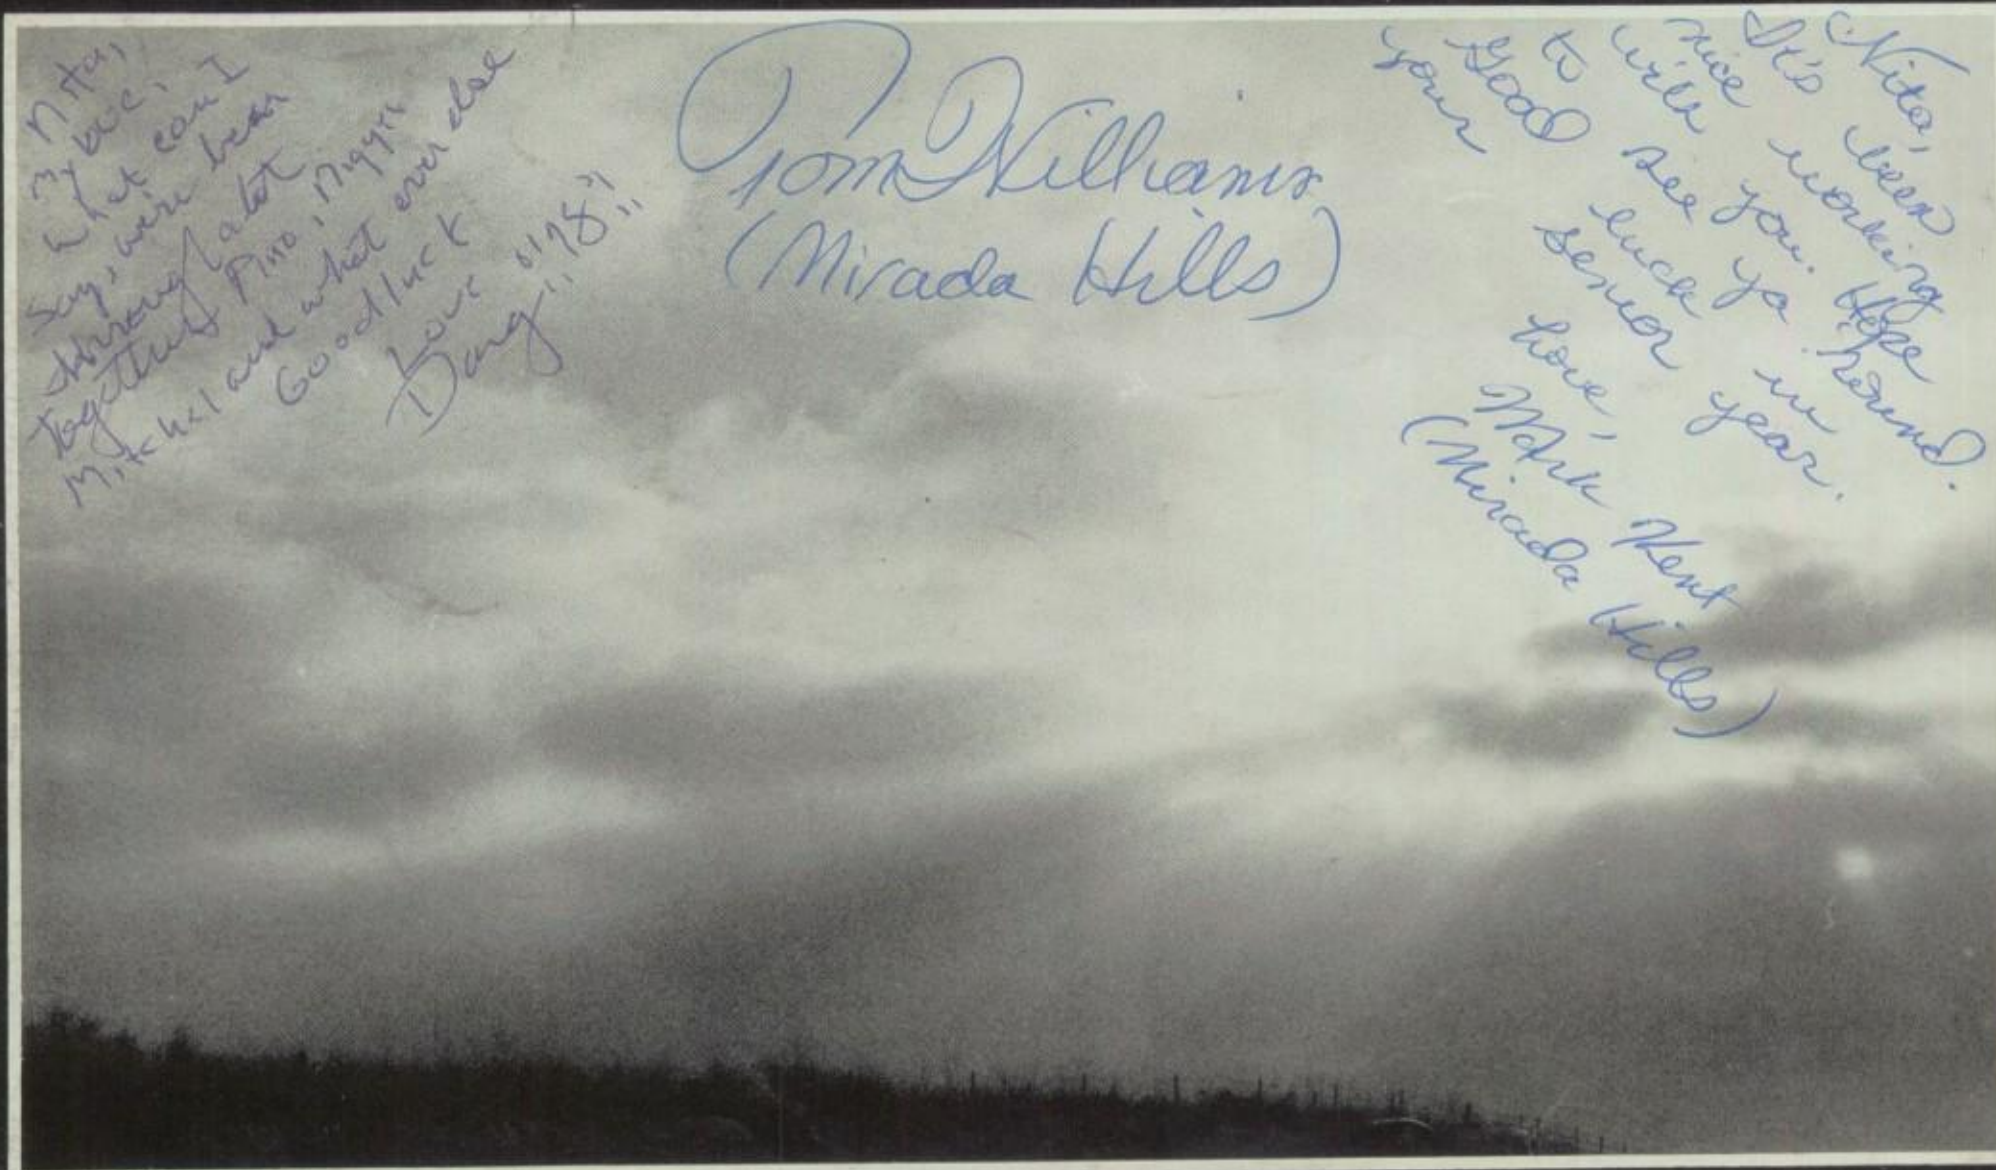 Nita,
what can I
Say, we've been
through alot
together
Mitchel and what ever else
Good luck
Love
Tom Williams
(Mirada Hills)
Nita,
It's been
nice working
with you. Hope
to see ya 'round.
Good luck in
your senior year.
Love,
Mark Kent
(Mirada Hills)